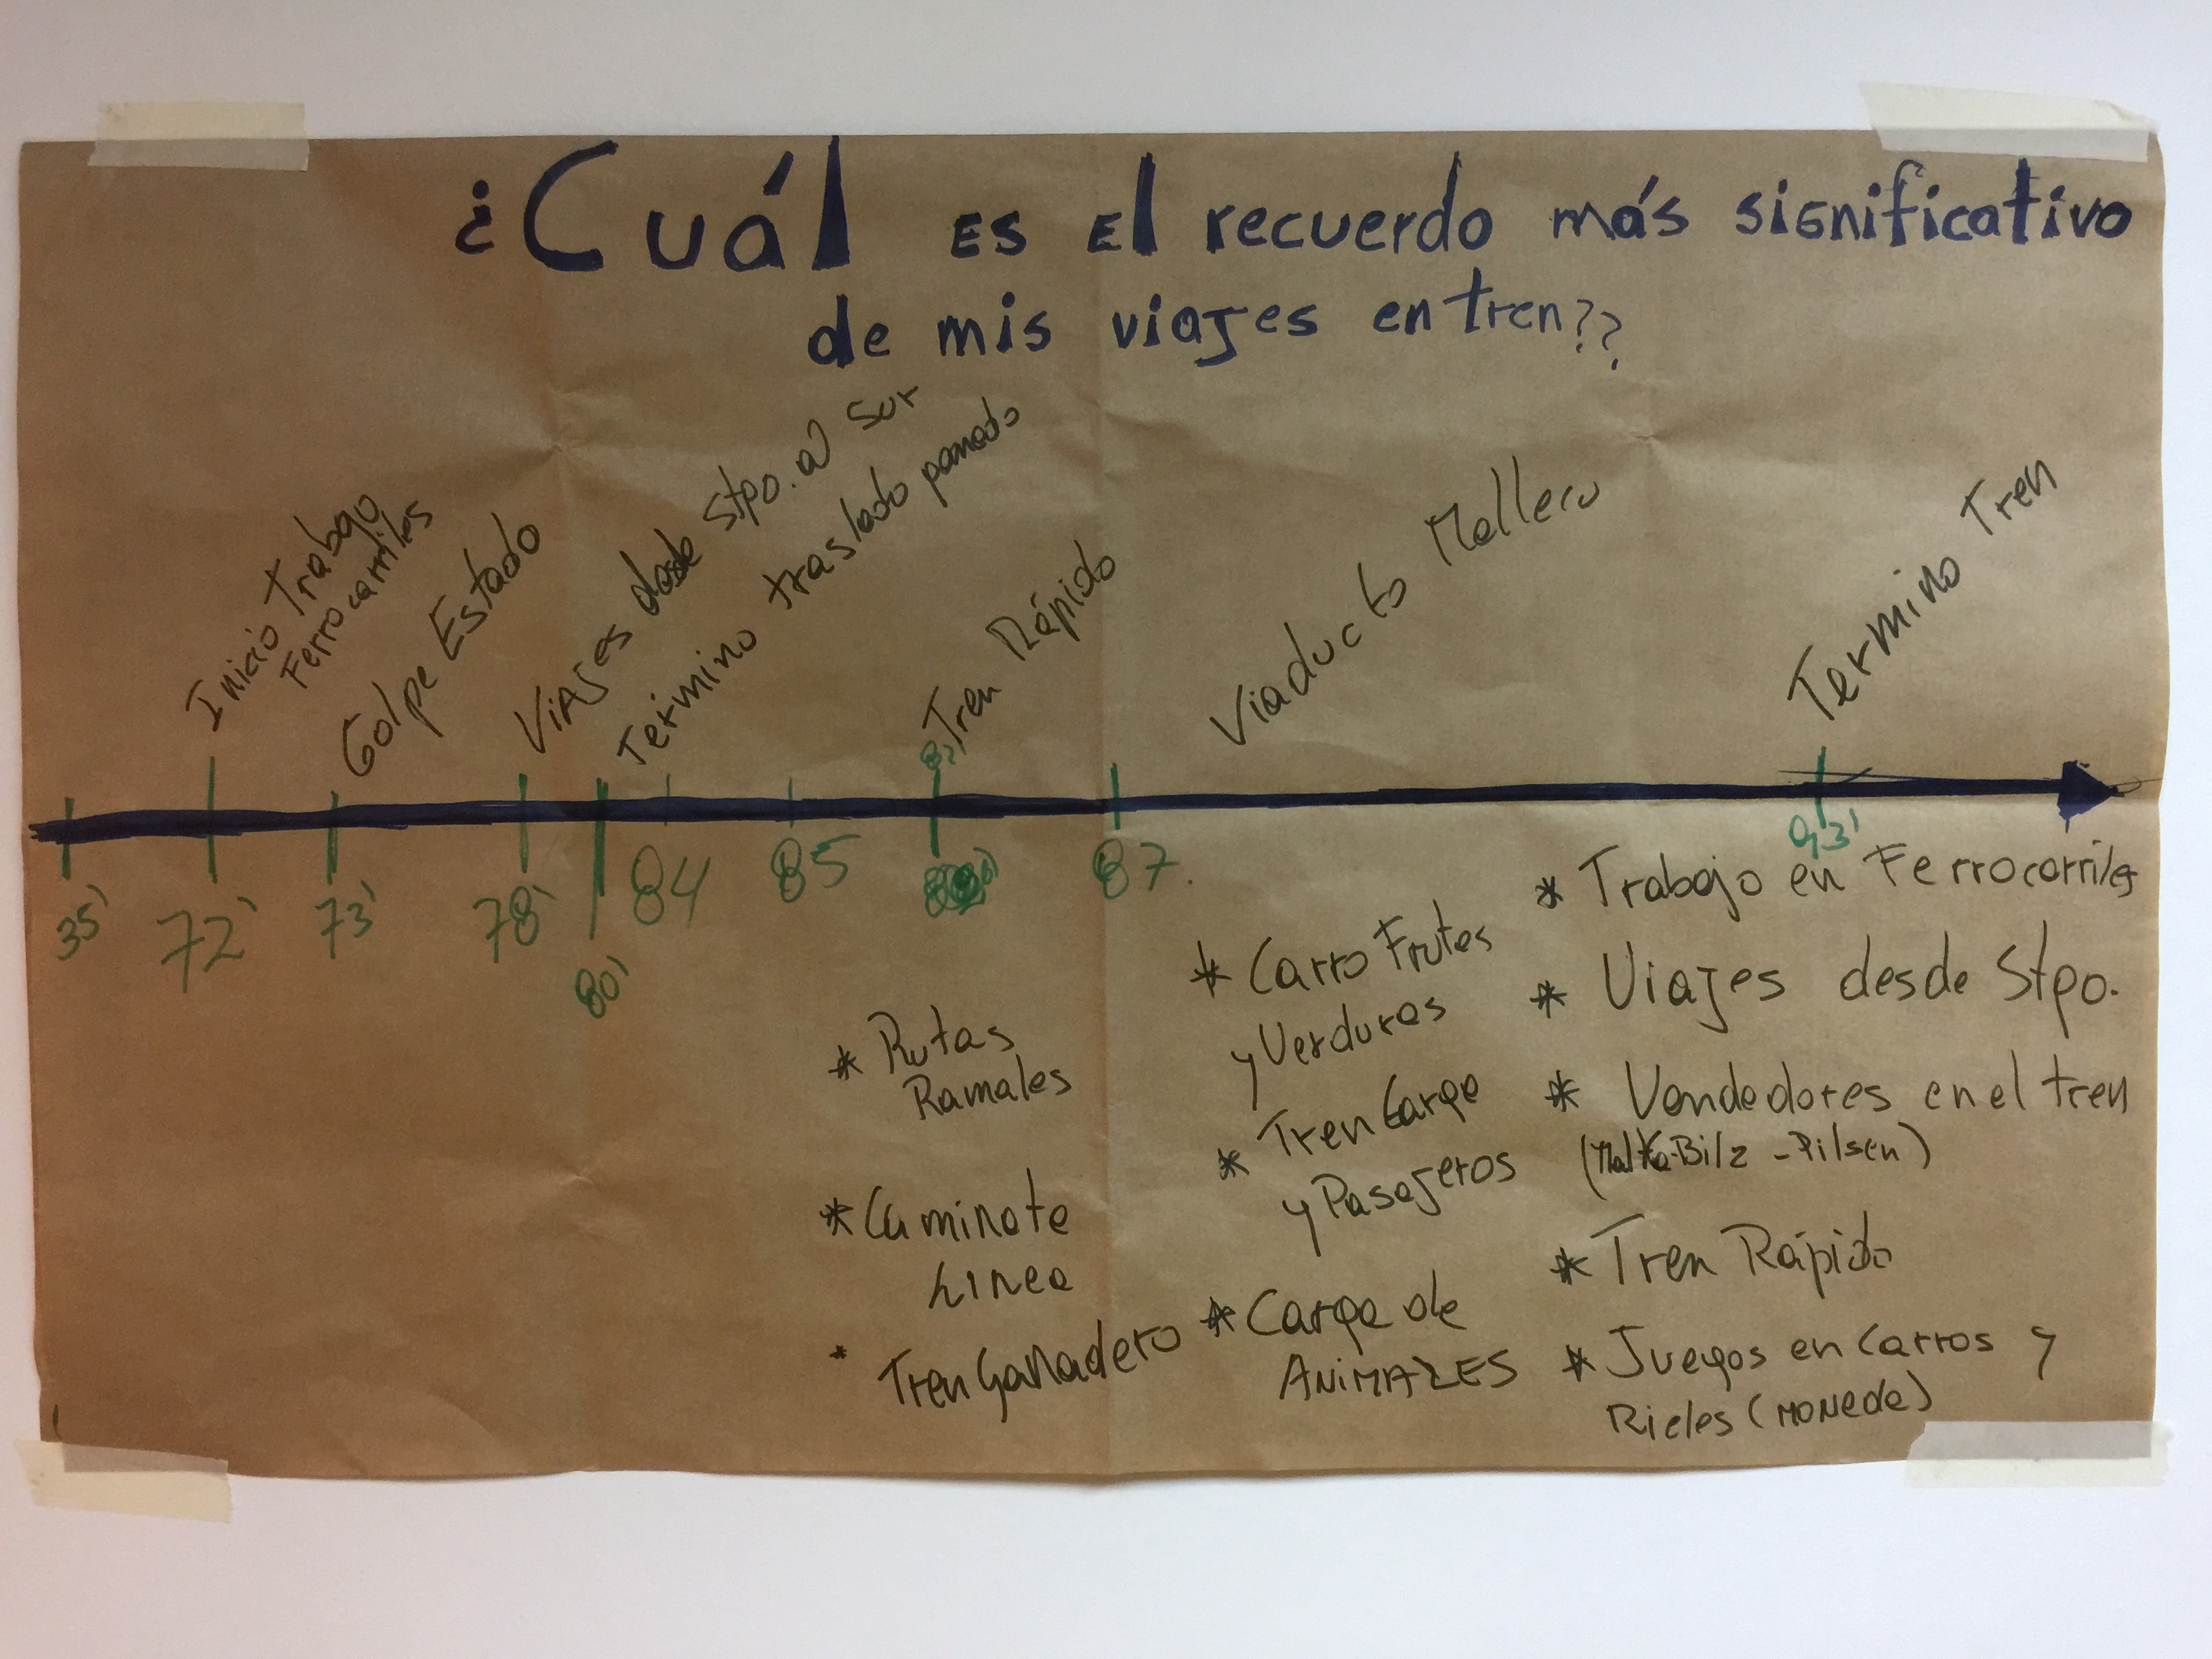 ¿Cuál ES El recuerdo más significativo
de mis viajes en tren??
Inicio Trabajo
Ferrocarriles
Golpe Estado
Viajes desde Stpo. al sur
Termino traslado
Tren Rápido
Viaducto Malleco
Termino Tren
35'
72'
73'
78'
80'
84
85
87.
93'
* Rutas
Ramales
* Caminata
Linea
* Tren Ganadero
* Carro Frutas
y Verduras
* Tren Carga
y Pasajeros
* Carga de
ANIMALES
* Trabajo en Ferrocarriles
* Viajes desde Stpo.
* Vendedores en el tren
(Malta-Bilz - Pilsen)
* Tren Rápido
* Juegos en Carros y
Rieles (MONEDA)